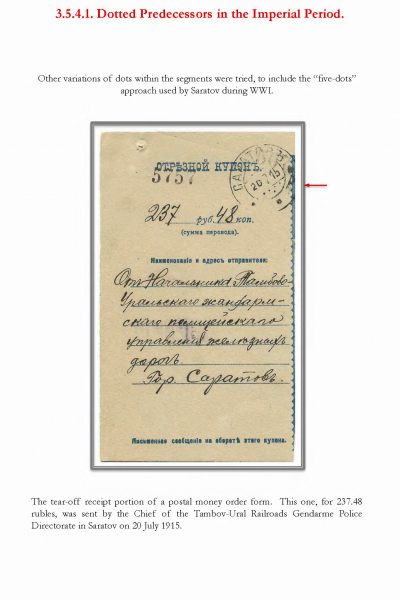 3.5.4.1. Dotted Predecessors in the Imperial Period.
Other variations of dots within the segments were tried, to include the “five-dots”
approach used by Saratov during WWI.
ОТРѢЗНОЙ КУПОНЪ.
5757
САРАТОВЪ
20 7 15
237 руб. 48 коп.
(сумма перевода).
Наименованіе и адресъ отправителя:
Отъ Начальника Тамбово-
Уральскаго жандарм-
скаго полицейскаго
управления железныхъ
дорогъ.
Гор. Саратовъ.
Письменное сообщеніе на оборотѣ этого купона.
The tear-off receipt portion of a postal money order form. This one, for 237.48
rubles, was sent by the Chief of the Tambov-Ural Railroads Gendarme Police
Directorate in Saratov on 20 July 1915.